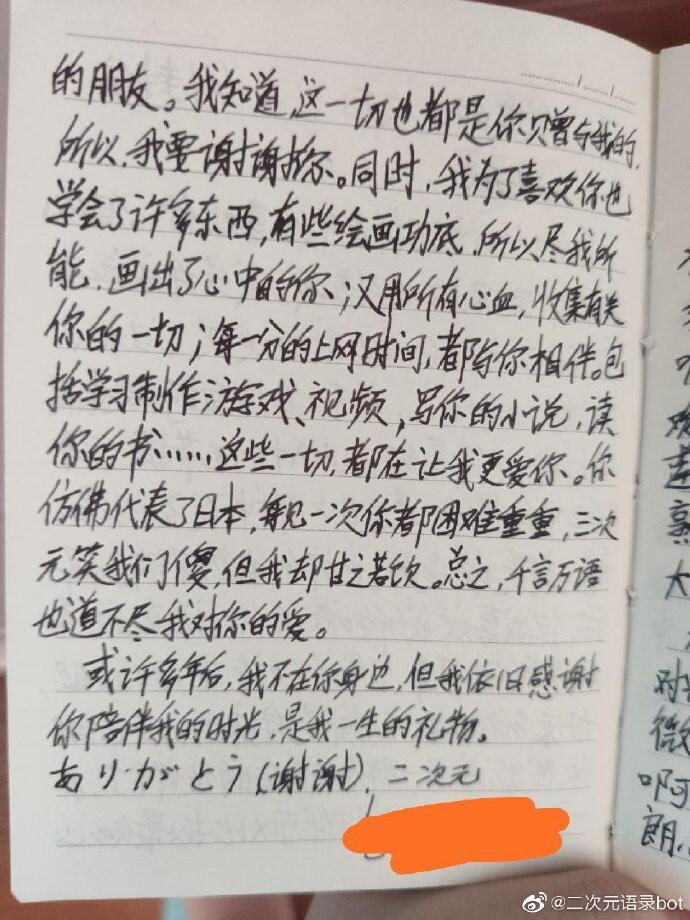 的朋友。我知道,这一切也都是你赠与我的,
所以,我要谢谢你。同时,我为了喜欢你也
学会了许多东西,有些绘画功底,所以尽我所
能,画出了心中的你;又用所有心血,收集有关
你的一切;每一分的上网时间,都与你相伴。包
括学习制作游戏、视频,写你的小说,读
你的书……,这些一切,都在让我更爱你。你
仿佛代表了日本,每见一次你都困难重重,三次
元笑我们傻,但我却甘之若饮。总之,千言万语
也道不尽我对你的爱。
或许多年后,我不在你身边,但我依旧感谢
你陪伴我的时光,是我一生的礼物。
ありがとう(谢谢),二次元
大
对
微
啊
朗
@二次元语录bot